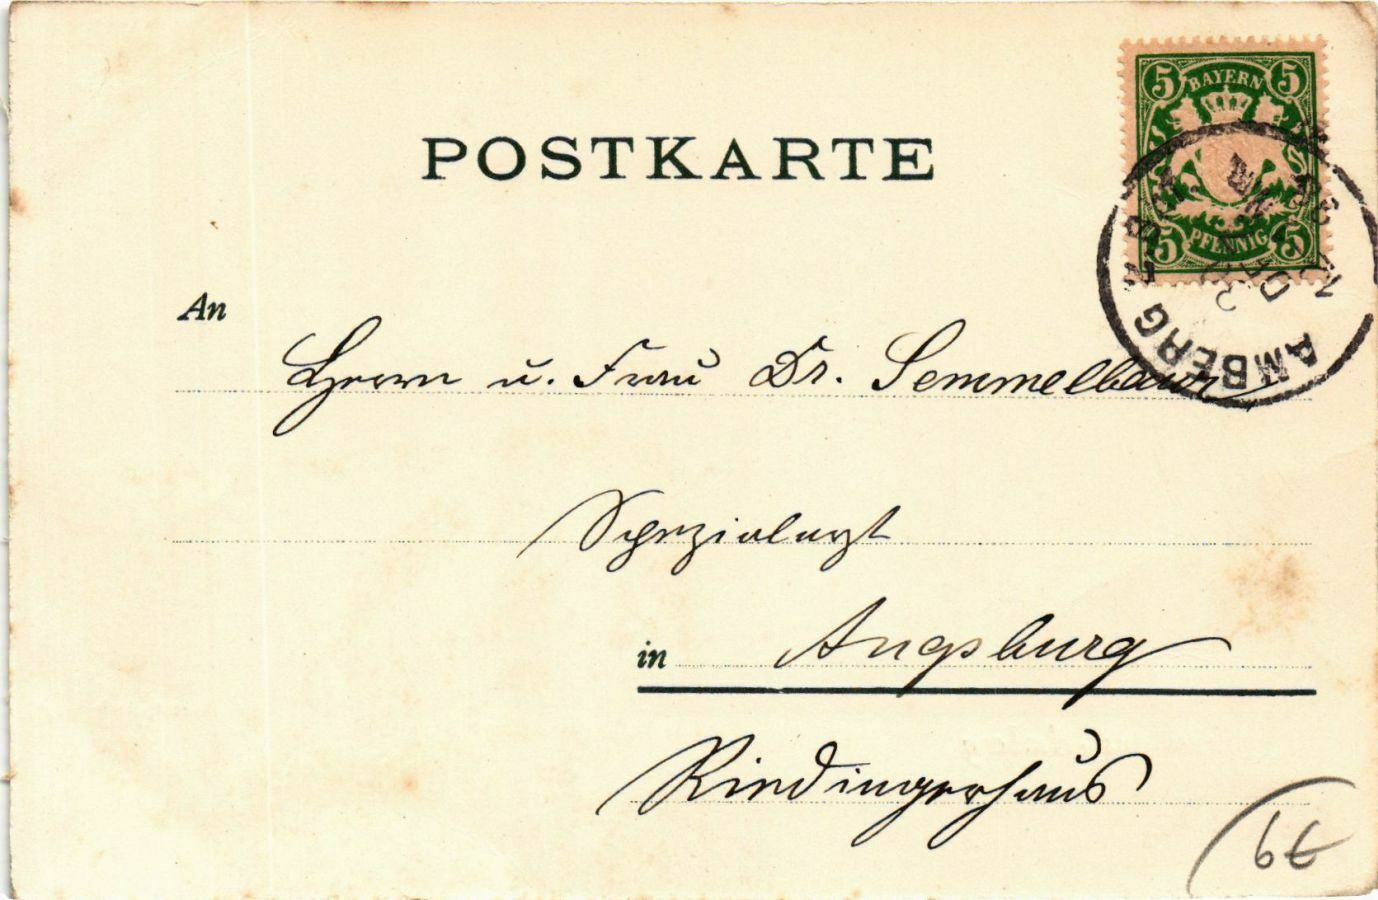 POSTKARTE
5 BAYERN 5
5 PFENNIG 5
AMBERG
An
Herrn u. Frau Dr. Semmelbauer
Spezialarzt
in Augsburg
Riedingerhaus
6€